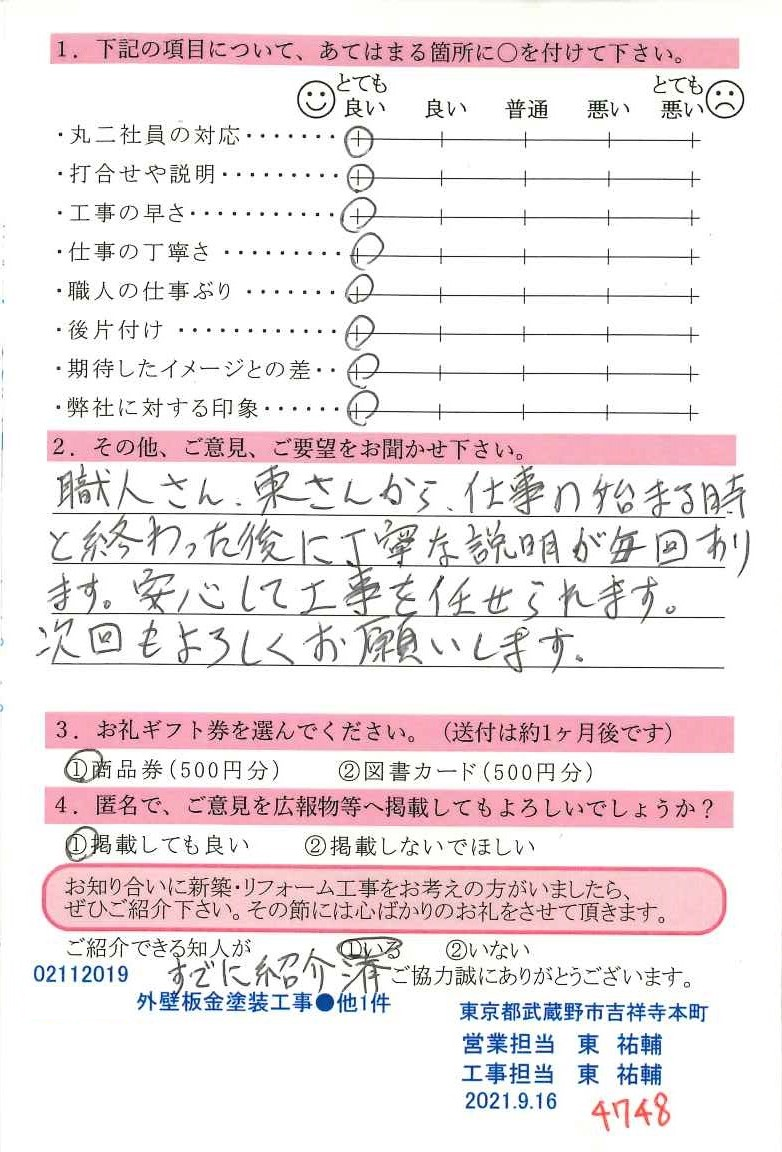 1．下記の項目について、あてはまる箇所に○を付けて下さい。
とても良い 良い 普通 悪い とても悪い
・丸二社員の対応・・・・・・・
・打合せや説明・・・・・・・・・
・工事の早さ・・・・・・・・・・・
・仕事の丁寧さ・・・・・・・・・
・職人の仕事ぶり・・・・・・・
・後片付け・・・・・・・・・・・・
・期待したイメージとの差・・
・弊社に対する印象・・・・・・
2．その他、ご意見、ご要望をお聞かせ下さい。
職人さん、東さんから、仕事の始まる時
と終わった後に丁寧な説明が毎回あり
ます。安心して工事を任せられます。
次回もよろしくお願いします。
3．お礼ギフト券を選んでください。（送付は約1ヶ月後です）
①商品券(500円分) ②図書カード(500円分)
4．匿名で、ご意見を広報物等へ掲載してもよろしいでしょうか？
①掲載しても良い ②掲載しないでほしい
お知り合いに新築・リフォーム工事をお考えの方がいましたら、
ぜひご紹介下さい。その節には心ばかりのお礼をさせて頂きます。
ご紹介できる知人が ①いる ②いない
02112019 すでに紹介済 ご協力誠にありがとうございます。
外壁板金塗装工事●他1件
東京都武蔵野市吉祥寺本町
営業担当 東 祐輔
工事担当 東 祐輔
2021.9.16 4748